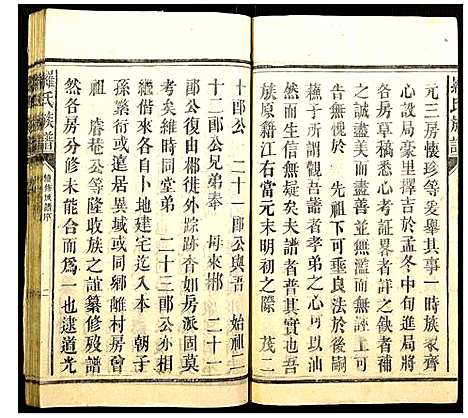 羅氏族譜
元三房懷珍等爰舉其事一時族眾齊
心設局豪里擇吉於孟冬中旬進局將
各房草稿悉心考証畧者詳之獻者補
之誠盡美而盡善並無濫而無遺已可
告無愧於 先祖下可垂良法於後嗣
信今傳無疑矣夫譜者孝弟之心油
族原籍江右當元末明初之際 茂二
十郎公 二十一郎公與吾 始祖二
十二郎公兄弟奉 母來郴 二十一
郎公復由郴徙外踪跡杳如房派固莫
考矣維時同堂弟 二十三郎公亦相
繼偕來各自卜地建宅迄入本 朝子
孫繁衍或遠居異域或同鄉離村房曾
祖 睿菴公等隆收族之誼纂修殘譜
然各房分修未能合而為一也逮道光
羅氏族譜
續修族譜序